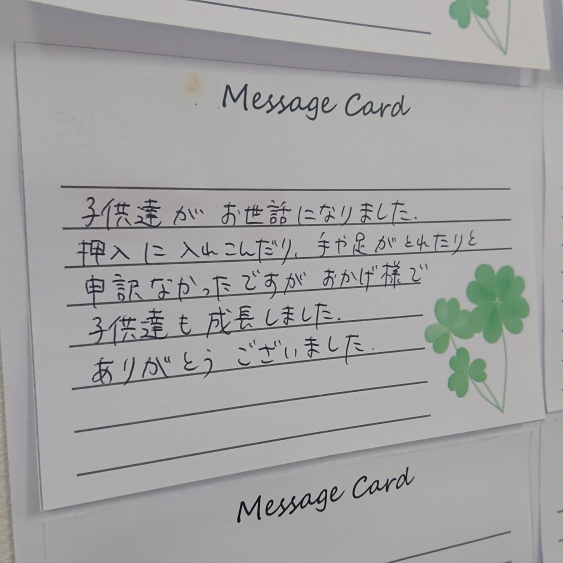 Message Card
子供達が お世話になりました.
押入に 入れこんだり、手や足がとれたりと
申訳なかったですが おかげ様で
子供達も 成長しました.
ありがとう ございました.
Message Card